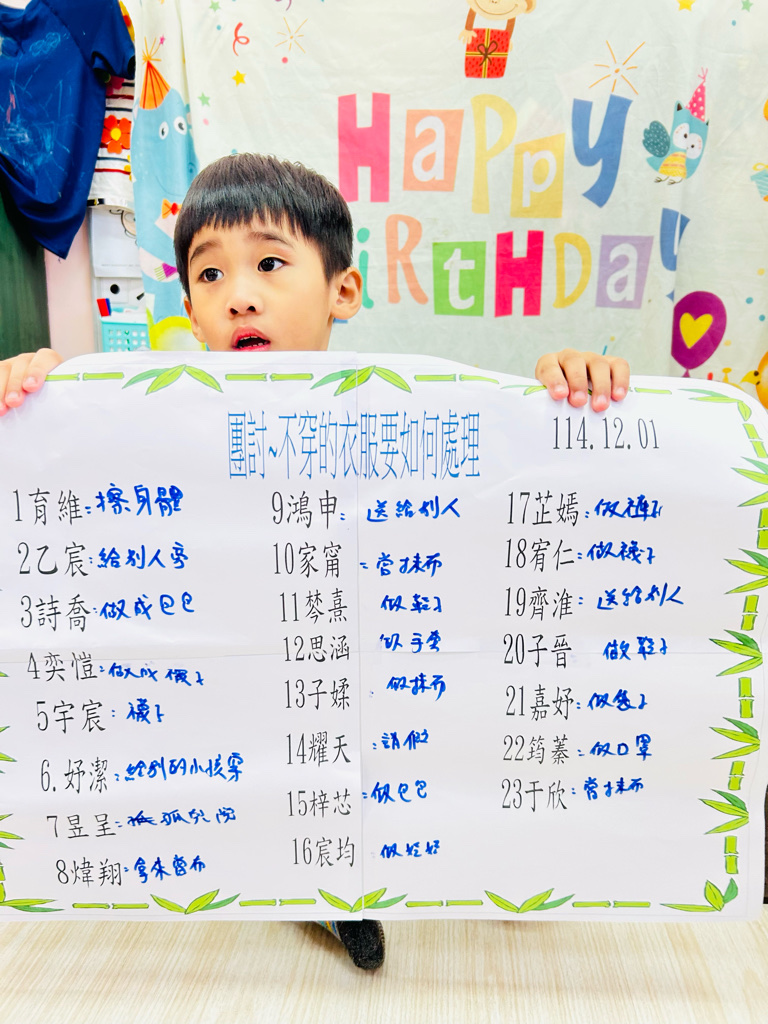 HAPPY
BiRtHDAY
團討~不穿的衣服要如何處理
114.12.01
1育維:擦身體
2乙宸:給別人穿
3詩喬:做成包包
4奕愷:做成襪子
5宇宸:襪子
6.妤潔:給別的小孩穿
7昱呈:孤兒院
8煒翔:拿來當布
9鴻申:送給別人
10家甯:當抹布
11棽熹 做鞋子
12思涵 做手套
13子媃:做抹布
14耀天:請假
15梓芯:做包包
16宸均:做娃娃
17芷嫣:做褲子
18宥仁:做襪子
19齊淮:送給別人
20子晉 做鞋子
21嘉妤:做袋子
22筠蓁:做口罩
23于欣:當抹布